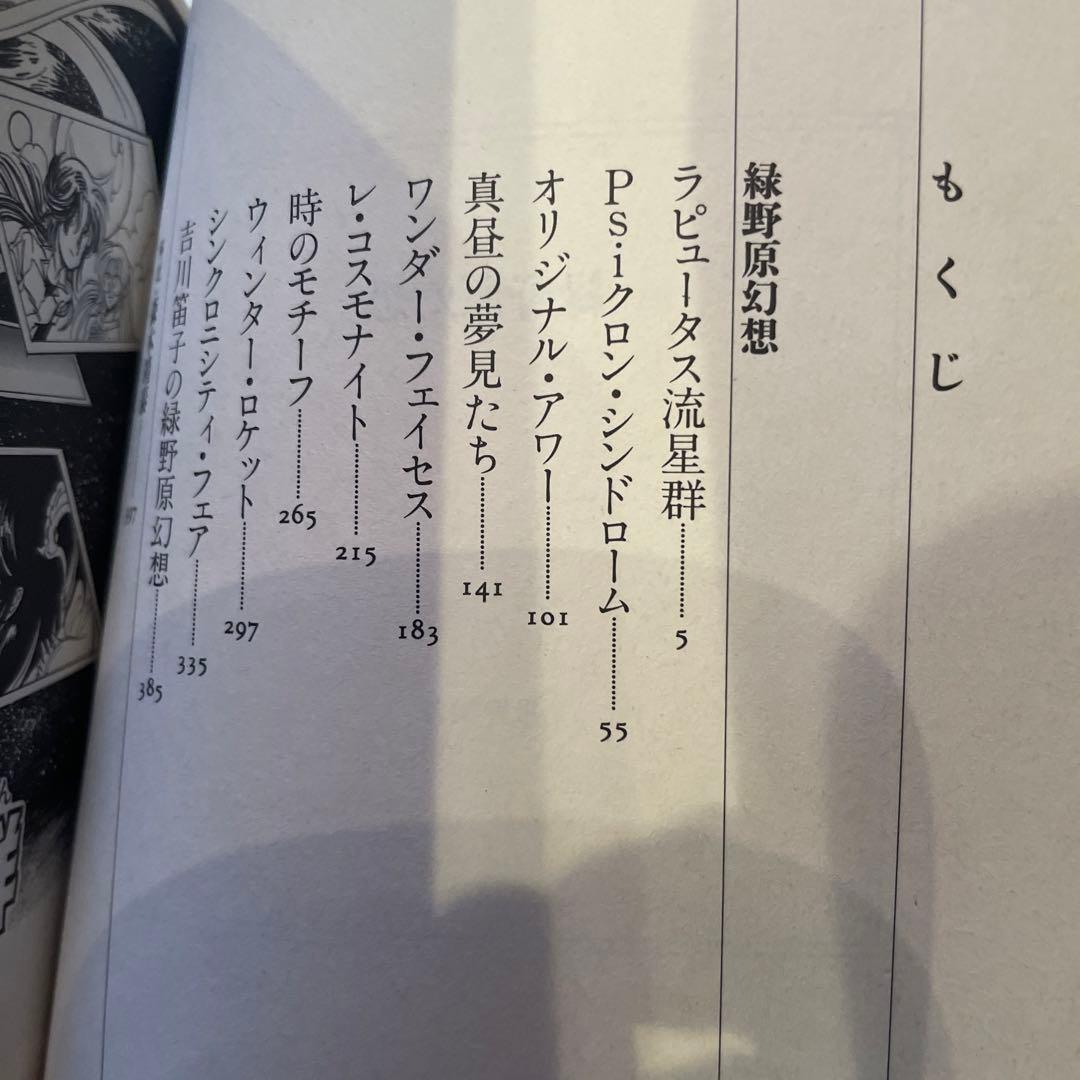 もくじ
緑野原幻想
ラピュータス流星群 5
Ps・iクロン・シンドローム 55
オリジナル・アワー 101
真昼の夢見たち 141
ワンダー・フェイセス 183
レ・コスモナイト 215
時のモチーフ 265
ウィンター・ロケット 297
シンクロニシティ・フェア 335
吉川笛子の緑野原幻想 385